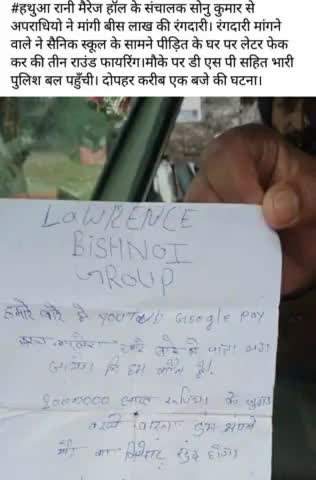 #हथुआ रानी मैरेज हॉल के संचालक सोनु कुमार से
अपराधियो ने मांगी बीस लाख की रंगदारी। रंगदारी मांगने
वाले ने सैनिक स्कूल के सामने पीड़ित के घर पर लेटर फेक
कर की तीन राउंड फायरिंग।मौके पर डी एस पी सहित भारी
पुलिश बल पहुँची। दोपहर करीब एक बजे की घटना।
LAWRENCE
BISHNOI
GROUP
हमारे बारे में YOUTUB Google Pay
हमारे बारे में पता चल
जायेगा कि हम कौन है।
2000000 लाख
वरना तुम अपने
मौत का जिम्मेदार खुद होगा